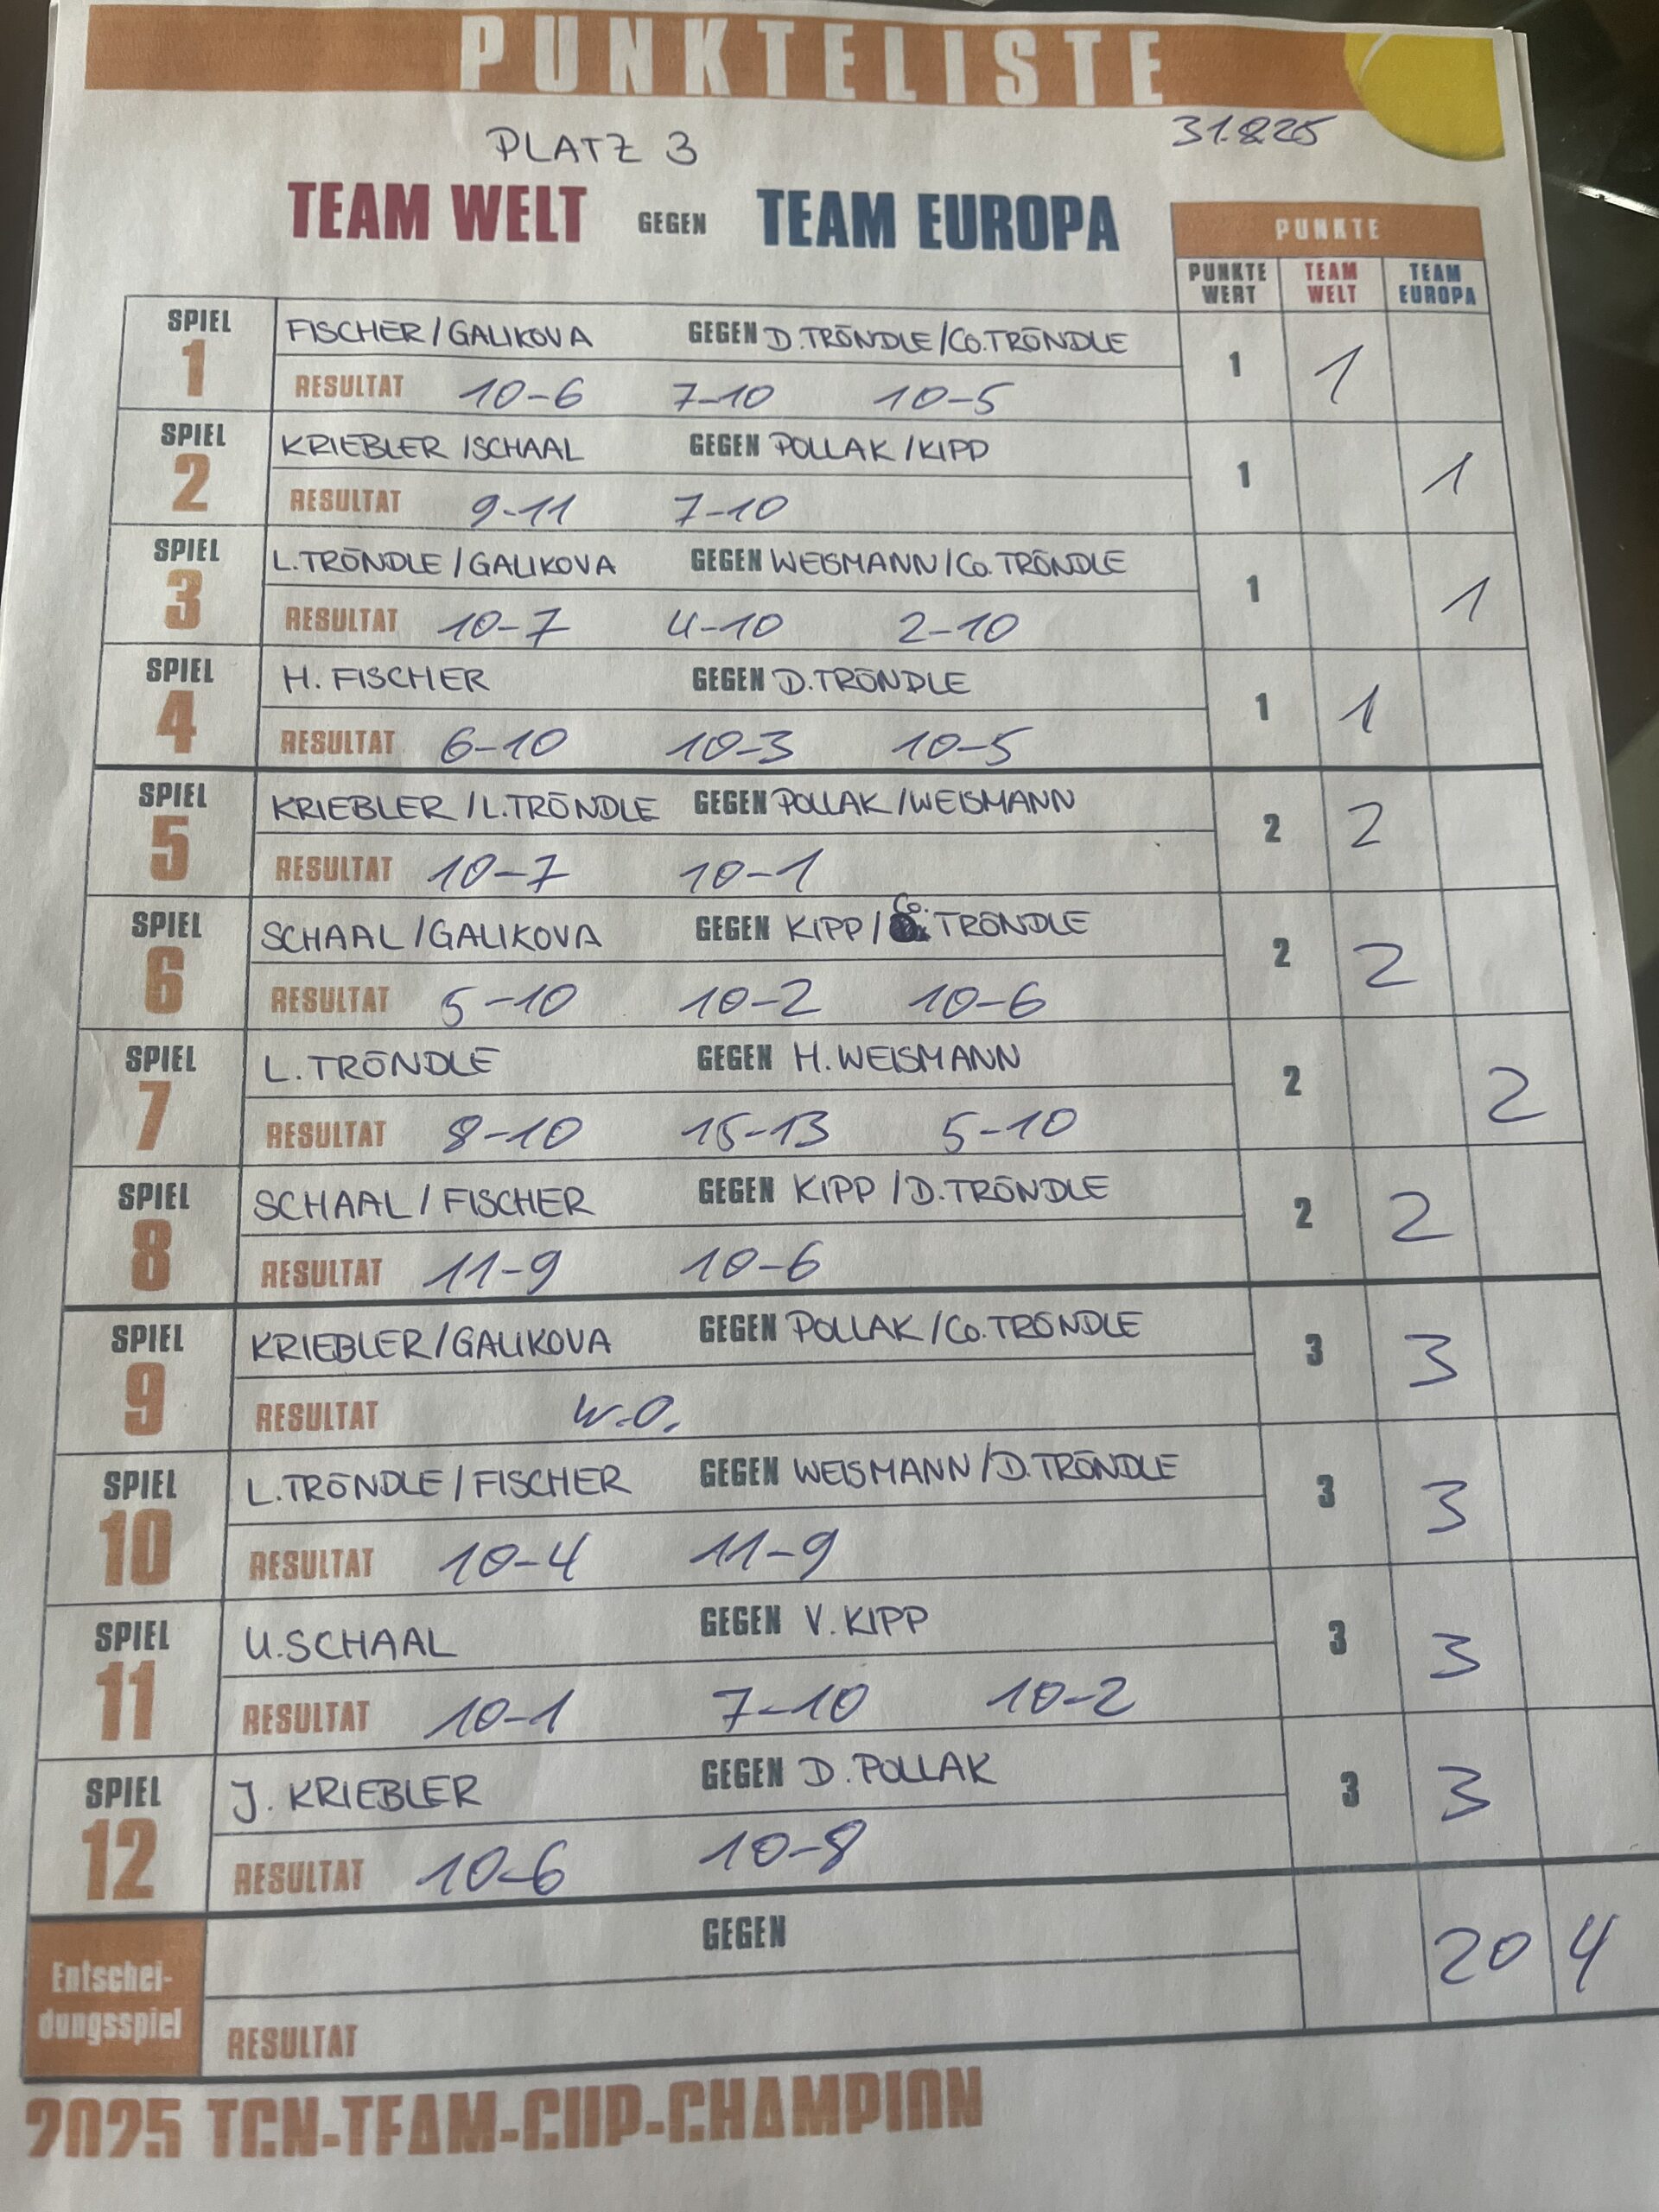 PUNKTELISTE
PLATZ 3 31.8.25
TEAM WELT GEGEN TEAM EUROPA
PUNKTE
PUNKTE WERT TEAM WELT TEAM EUROPA
SPIEL 1 FISCHER/GALIKOVA GEGEN D.TRÖNDLE/CO.TRÖNDLE 1 1
RESULTAT 10-6 7-10 10-5
SPIEL 2 KRIEBLER/SCHAAL GEGEN POLLAK/KIPP 1 1
RESULTAT 9-11 7-10
SPIEL 3 L.TRÖNDLE/GALIKOVA GEGEN WEISMANN/CO.TRÖNDLE 1 1
RESULTAT 10-7 4-10 2-10
SPIEL 4 H. FISCHER GEGEN D.TRÖNDLE 1 1
RESULTAT 6-10 10-3 10-5
SPIEL 5 KRIEBLER/L.TRÖNDLE GEGEN POLLAK/WEISMANN 2 2
RESULTAT 10-7 10-1
SPIEL 6 SCHAAL/GALIKOVA GEGEN KIPP/CO.TRÖNDLE 2 2
RESULTAT 5-10 10-2 10-6
SPIEL 7 L.TRÖNDLE GEGEN H.WEISMANN 2 2
RESULTAT 8-10 15-13 5-10
SPIEL 8 SCHAAL/FISCHER GEGEN KIPP/D.TRÖNDLE 2 2
RESULTAT 11-9 10-6
SPIEL 9 KRIEBLER/GALIKOVA GEGEN POLLAK/CO.TRÖNDLE 3 3
RESULTAT W.O.
SPIEL 10 L.TRÖNDLE/FISCHER GEGEN WEISMANN/D.TRÖNDLE 3 3
RESULTAT 10-4 11-9
SPIEL 11 U.SCHAAL GEGEN V.KIPP 3 3
RESULTAT 10-1 7-10 10-2
SPIEL 12 J. KRIEBLER GEGEN D.POLLAK 3 3
RESULTAT 10-6 10-8
Entschei-
dungsspiel GEGEN 20 4
RESULTAT
2025 TCN-TEAM-CUP-CHAMPION